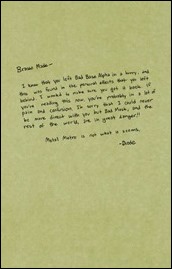 Brave Mode—
I know that you left Bad Base Alpha in a hurry, and
this was found in the personal effects that you left
behind. I wanted to make sure you get it back. If
you're reading this now you're probably in a lot of
pain and confusion. I'm sorry that I could never
be more direct with you but Bad Mask, and the
rest of the world, are in great danger!!
Metal Metro is not what it seems.